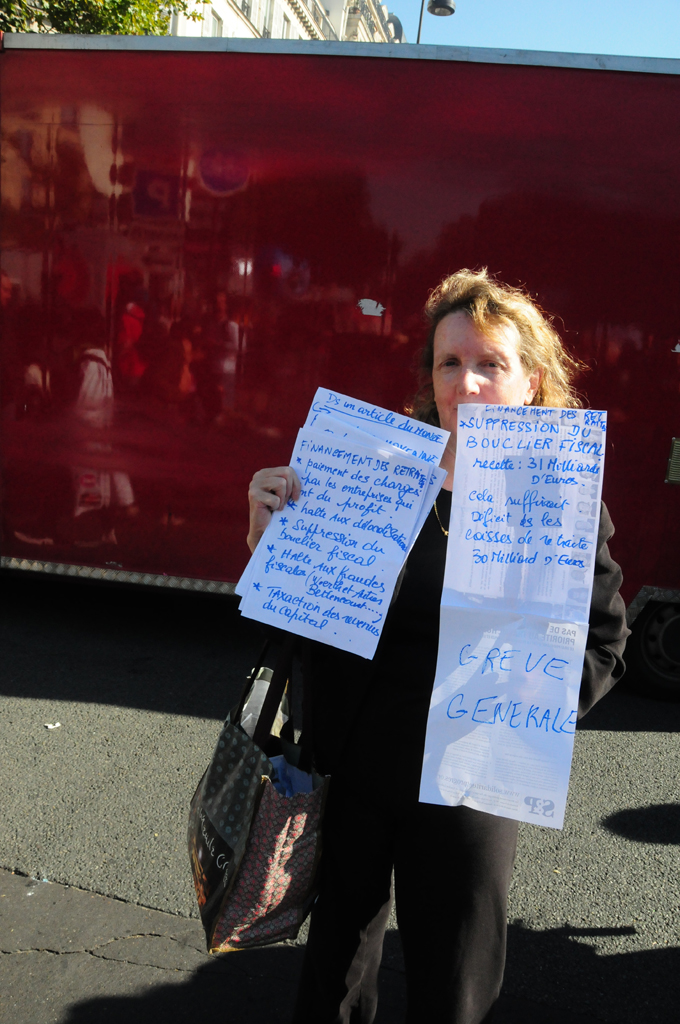 Ds un article du MONDE
FINANCEMENT DES RETRAITES
* paiement des charges
par les entreprises qui
ont du profit.
* halte aux délocalisations
* Suppression du
bouclier fiscal
* Halte aux fraudes
fiscales
Bettencourt....)
* TAXACTION des revenus
du capital.
FINANCEMENT DES RETRAITES
*SUPPRESSION DU
BOUCLIER FISCAL
recette: 31 Milliards
d'Euros.
Cela suffirait
Déficit ds les
caisses de retraite
30 Milliard d'Euros
GREVE
GENERALE
PAS DE
PRIORITE